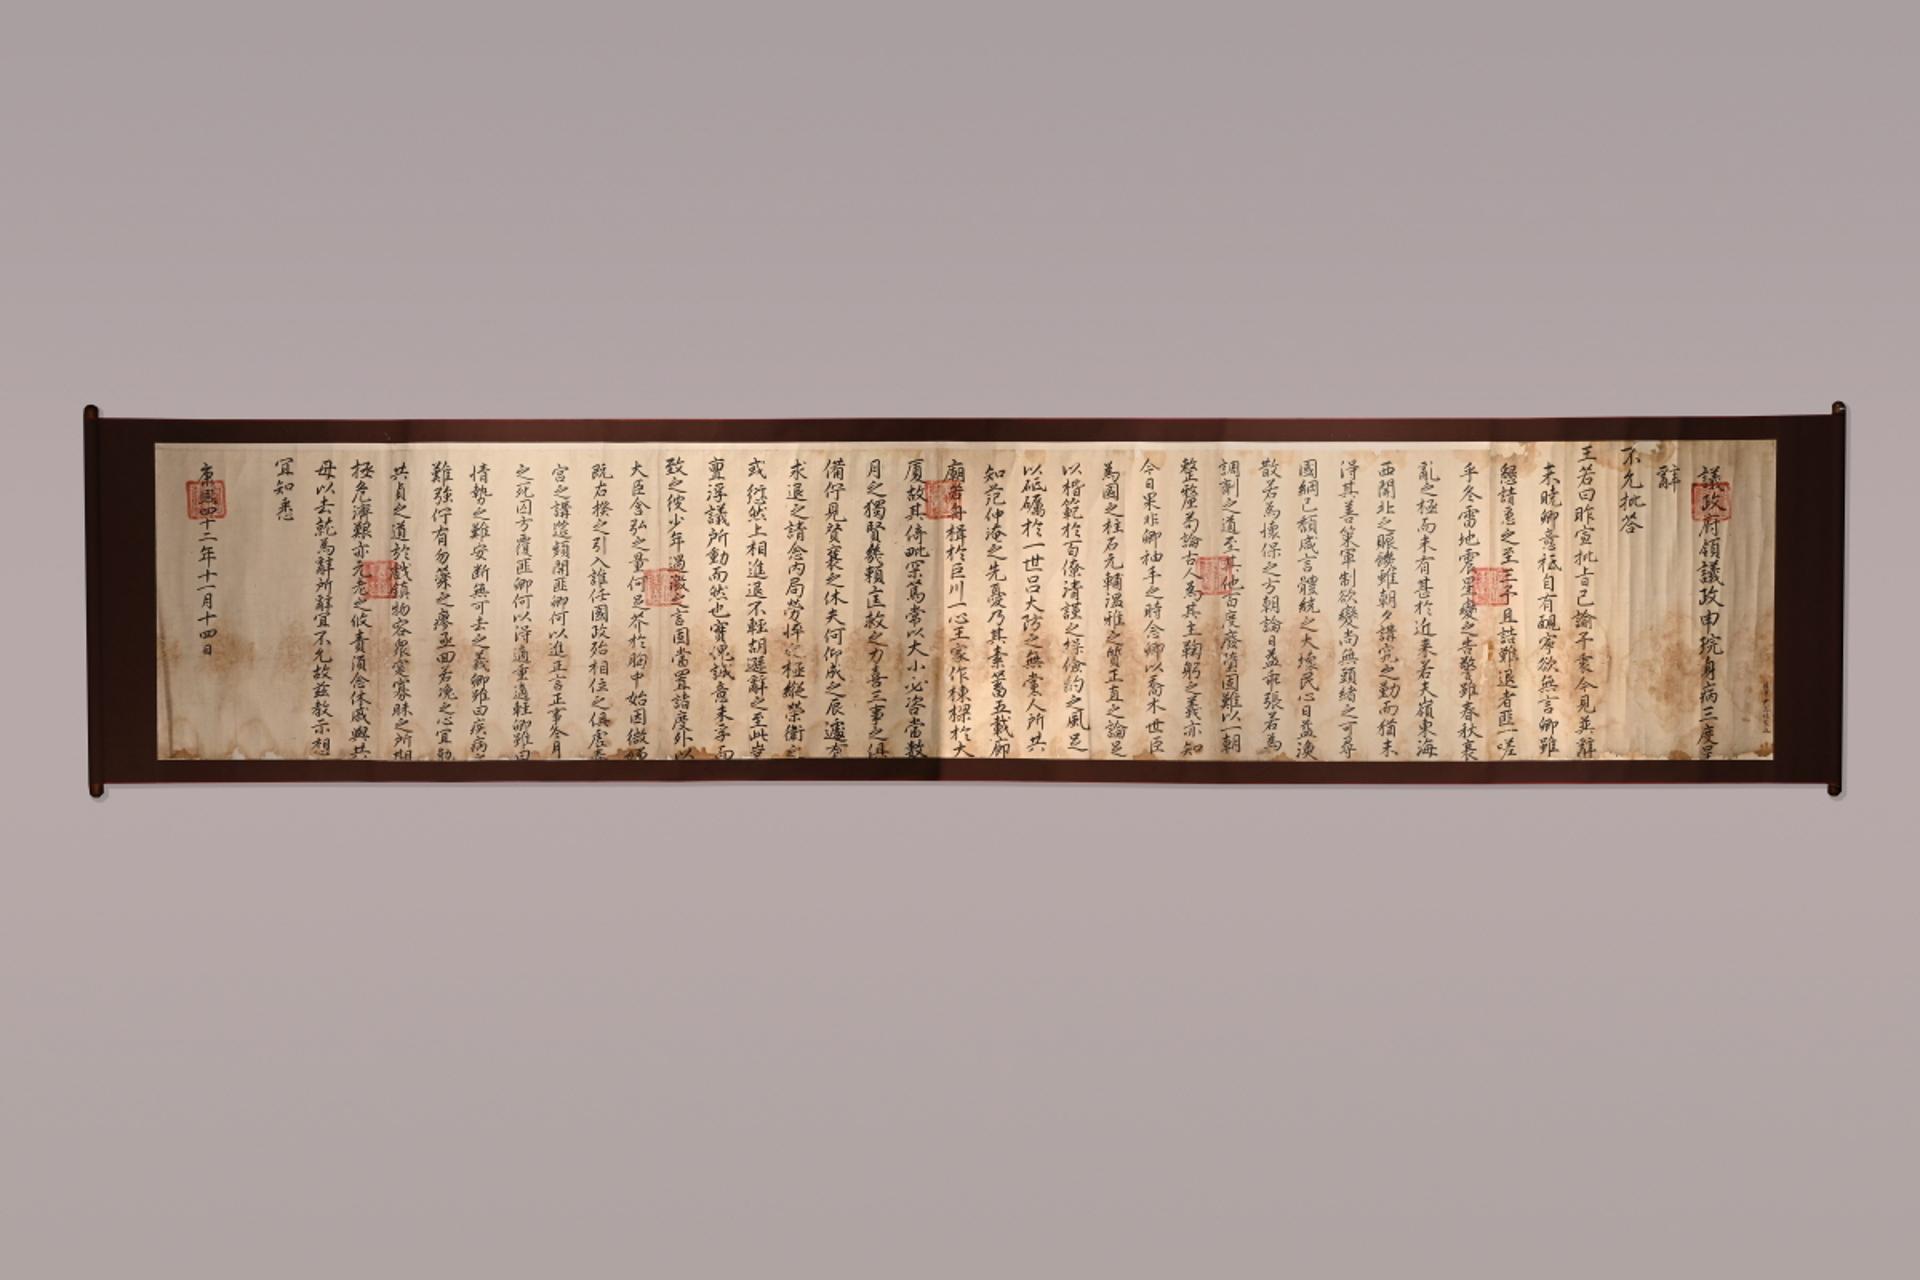 議政府領議政申琓身病三度呈
辭
不允批答
王若曰昨宣批旨已諭予衷今見並辭
未曉卿意秪自有靦寧欲無言卿雖
懇請愈之至三予且詰難退者匪一嗟
乎冬雷地震星變之告警雖春秋衰
亂之極而未有甚於近来若夫嶺東海
西關北之賑饑雖朝夕講究之勤而猶未
得其善策軍制欲變尚無頭緒之可尋
國綱已頹咸言體統之大壞民心日益渙
散若為懷保之方朝論日益乖張若為
調劑之道至其他百度廢墜固難以一朝
整釐為論古人為其主鞠躬之義亦知
今日果非卿袖手之時念卿以喬木世臣
為國之柱石元輔溫雅之質正直之論足
以楷範於百僚清謹之操儉約之風足
以砥礪於一世呂大防之無黨人所共
知范仲淹之先憂乃其素蓄五載廊
廟若舟楫於巨川一心王家作棟樑於大
廈故其倚毗罙篤常以大小必咨當數
月之獨賢幾賴匡救之力喜三事之俱
備佇見贊襄之休夫何仰成之辰遽有
求退之請念內局勞悴之極縱榮衛之
或愆然上相進退不輕胡遜辭之至此豈
亶浮議所動而然也實愧誠意未孚而
致之彼少年過激之言固當置諸度外以
大臣含弘之量何足芥於胸中始因微
既右揆之引入誰任國政殆相位之俱虛
宮之講筵頻開匪卿何以進正言正事冬月
之死囚方覆匪卿何以得適重適輕卿雖曰
情勢之難安断無可去之義卿雖曰疾病之
難強佇有勿藥之廖亟回若浼之心宜勉
共貞之道於戲鎮物容衆寔寡昧之所期
拯危濟艱亦元老之攸責須念休戚與共
毋以去就為辭所辭宜不允故茲教示想
宜知悉
康熙四十二年十一月十四日